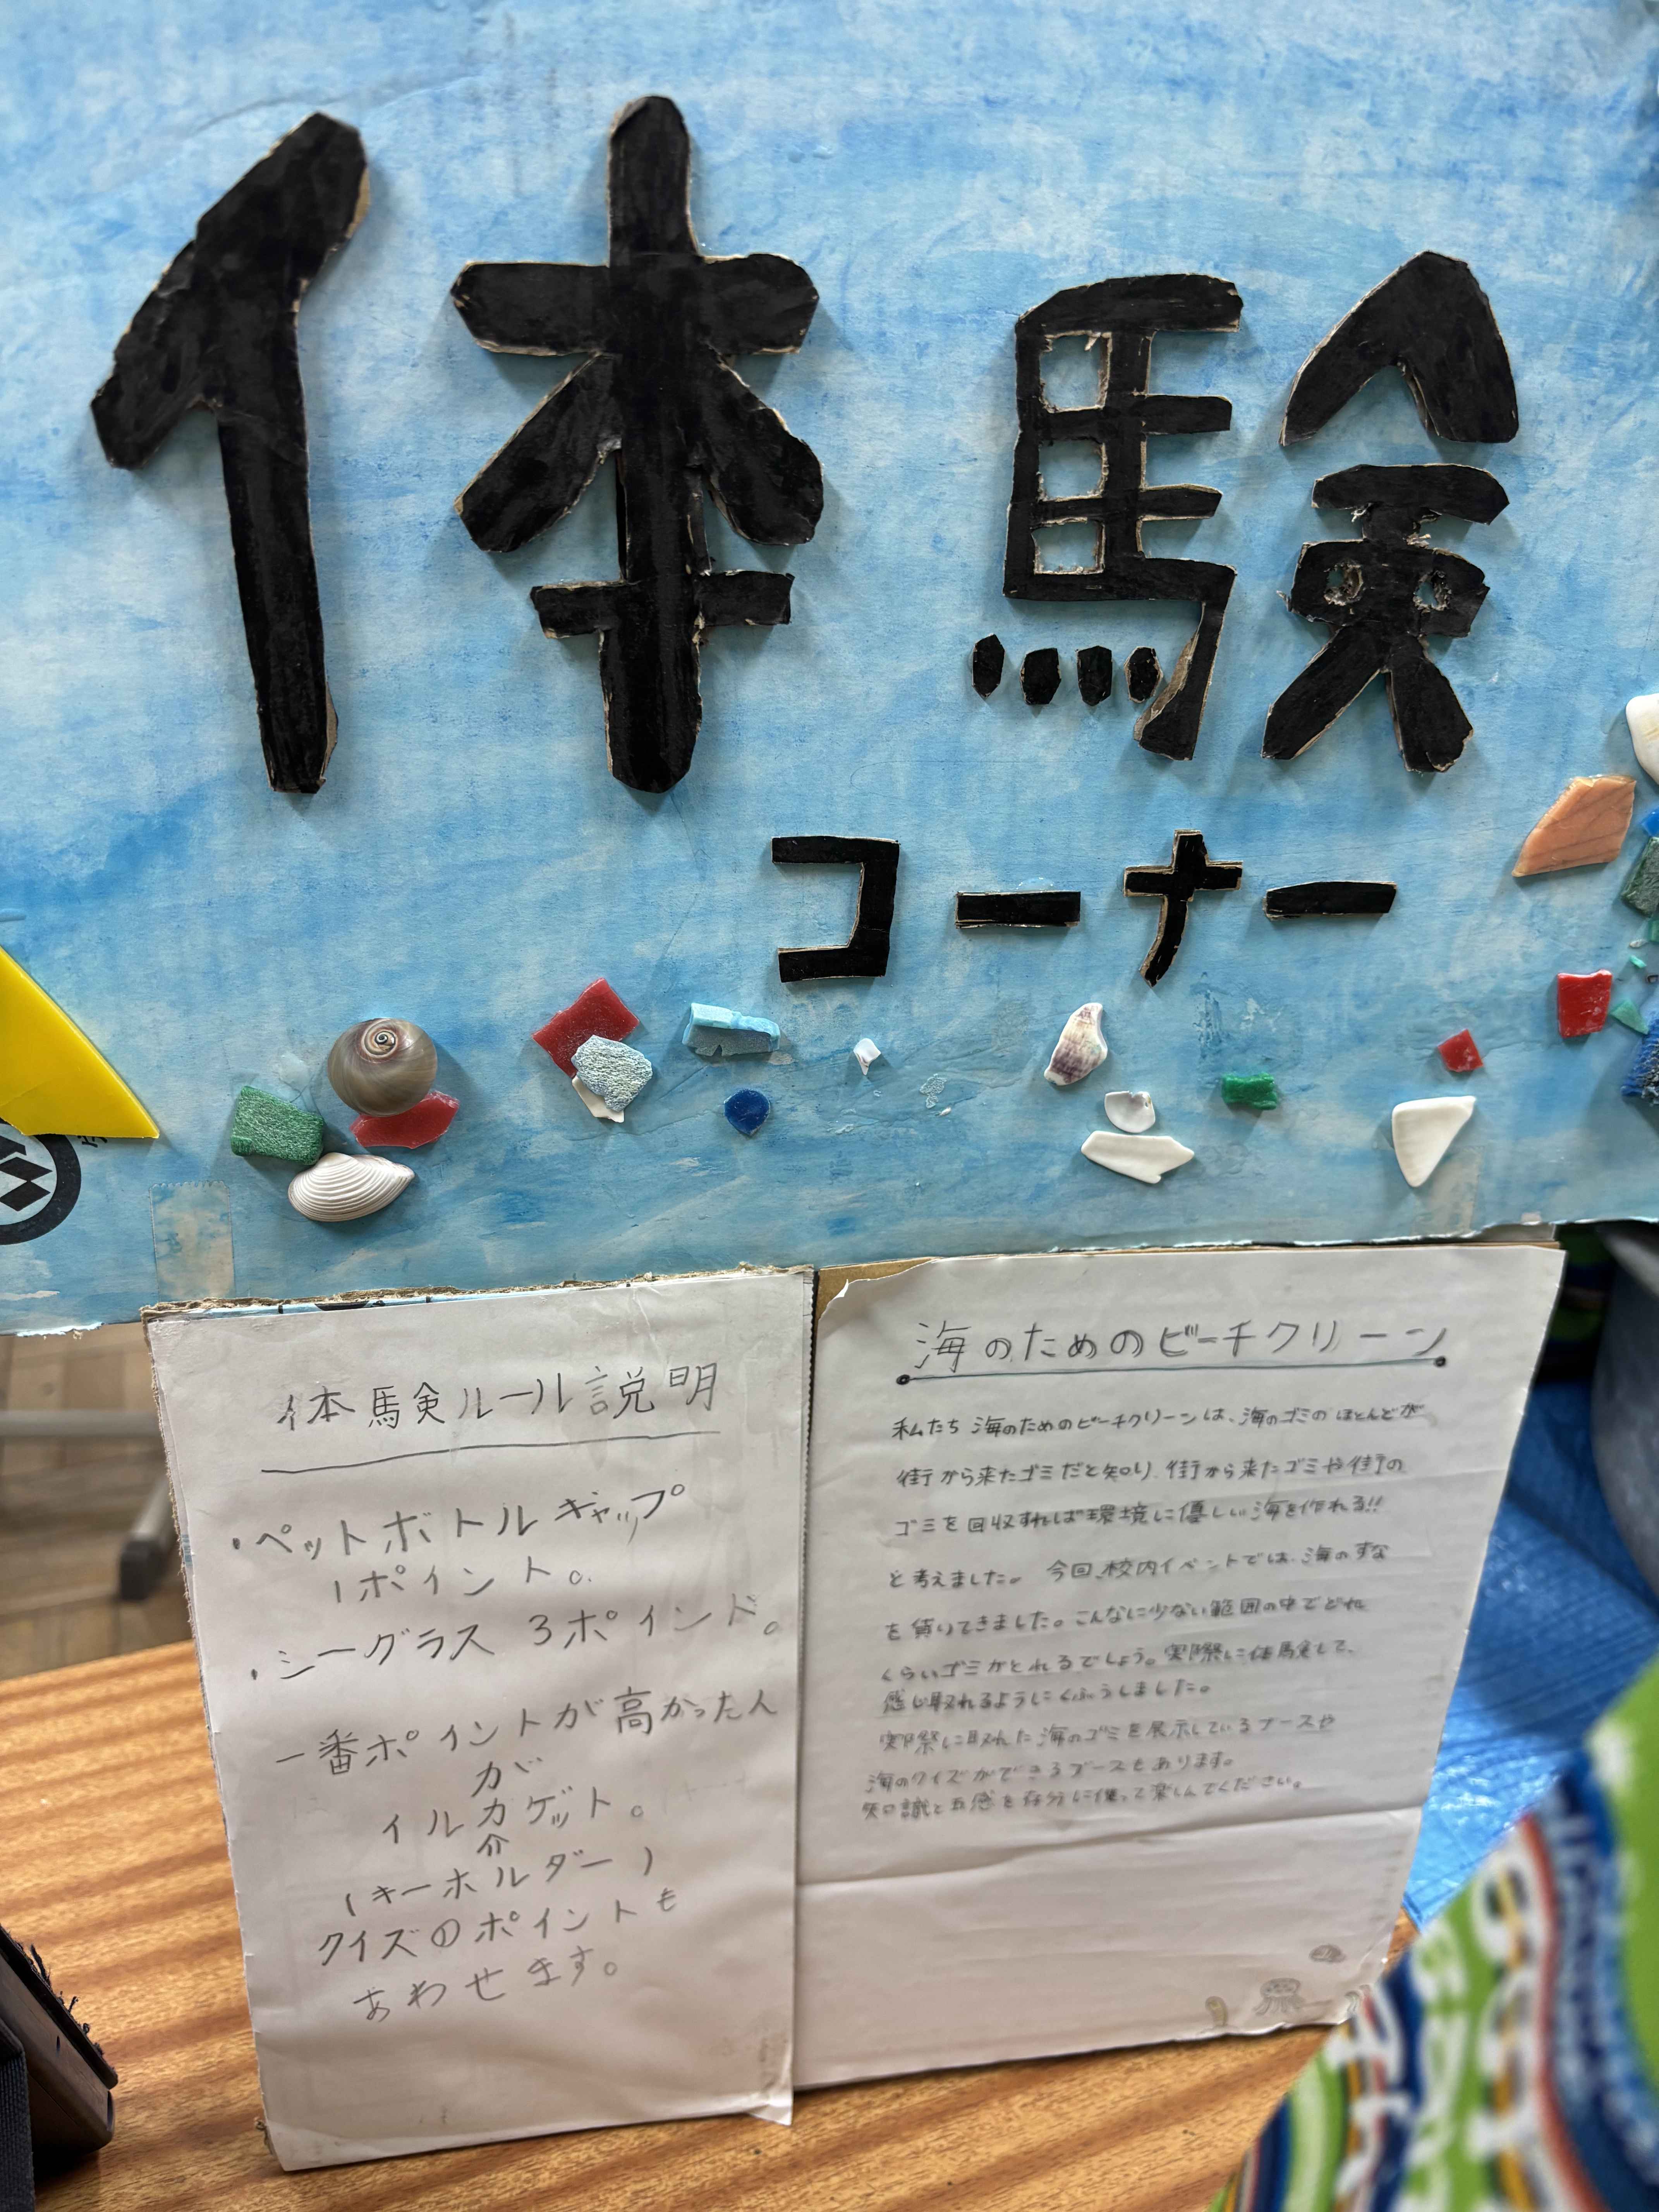 体験
コーナー
体験ルール説明
・ペットボトルキャップ
1ポイント。
・シーグラス 3ポイント。
一番ポイントが高かった人
が
イルカゲット。
(キーホルダー)
クイズのポイントも
あわせます。
海のためのビーチクリーン
私たち 海のためのビーチクリーンは、海のゴミの ほとんどが
街から来たゴミだと知り、街から来たゴミや街の
ゴミを回収すれば環境に優しい海を作れる!!
と考えました。 今回、校内イベントでは、海のすな
を借りてきました。こんなに少ない範囲の中でどれ
くらいゴミがとれるでしょう。実際に体験して、
感じ取れるようにくふうしました。
実際に取れた海のゴミを展示しているブースや
海のクイズができるブースもあります。
知識と五感を存分に使って楽しんでください。